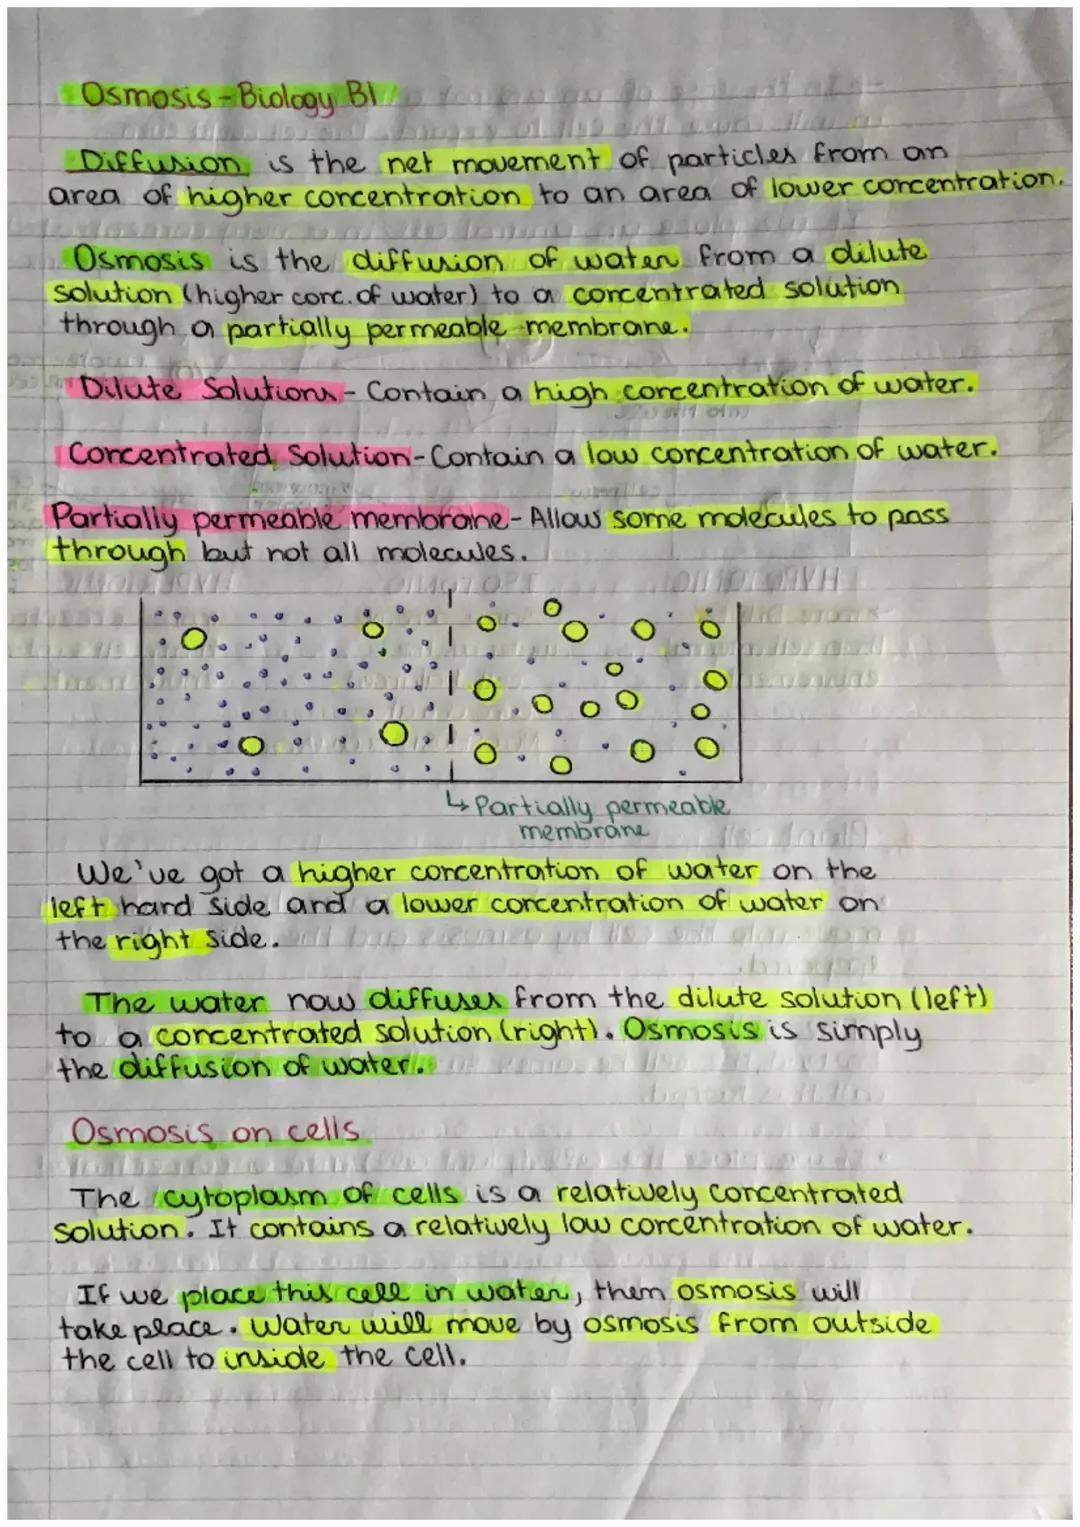 Osmosis - Biology B1
Diffusion is the net movement of particles from an
area of higher concentration to an area of lower concentration.
Osmosis is the diffusion of water from a dilute
solution (higher conc. of water) to a concentrated solution
through a partially permeable membrane.
Dilute Solutions - Contain a high concentration of water.
Concentrated Solution - Contain a low concentration of water.
Partially permeable membrane - Allow some molecules to pass
through but not all molecules.
↳ Partially permeable
membrane
We've got a higher concentration of water on the
left hand side and a lower concentration of water on
the right side.
The water now diffuses from the dilute solution (left)
to a concentrated solution (right). Osmosis is simply
the diffusion of water.
Osmosis on cells
The cytoplasm of cells is a relatively concentrated
solution. It contains a relatively low concentration of water.
If we place this cell in water, then osmosis will
take place. Water will move by osmosis from outside
the cell to inside the cell.